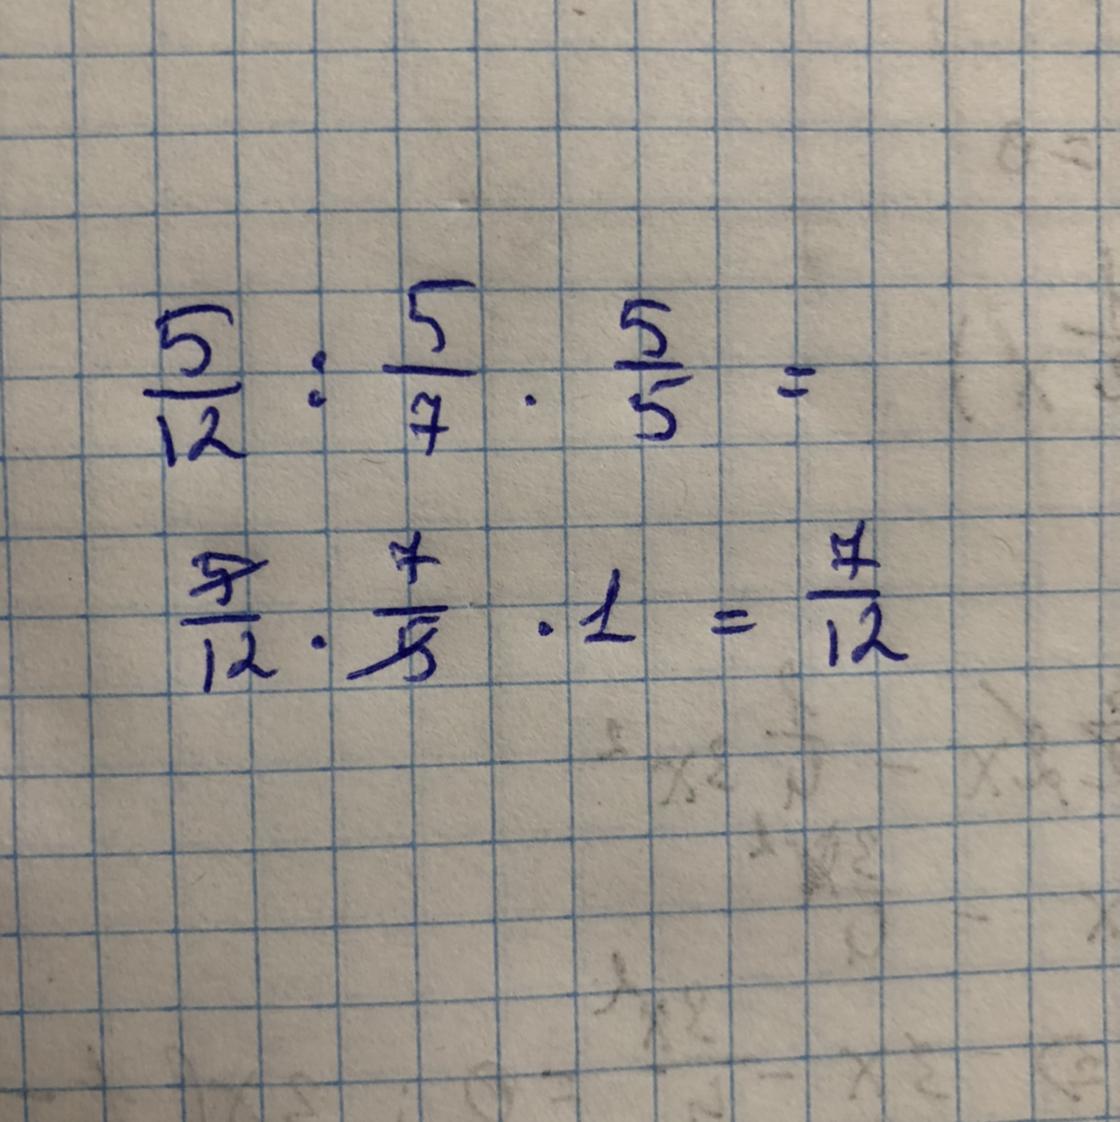 5/12 : 5/7 · 5/5 =
5/12 · 7/5 · 1 = 7/12